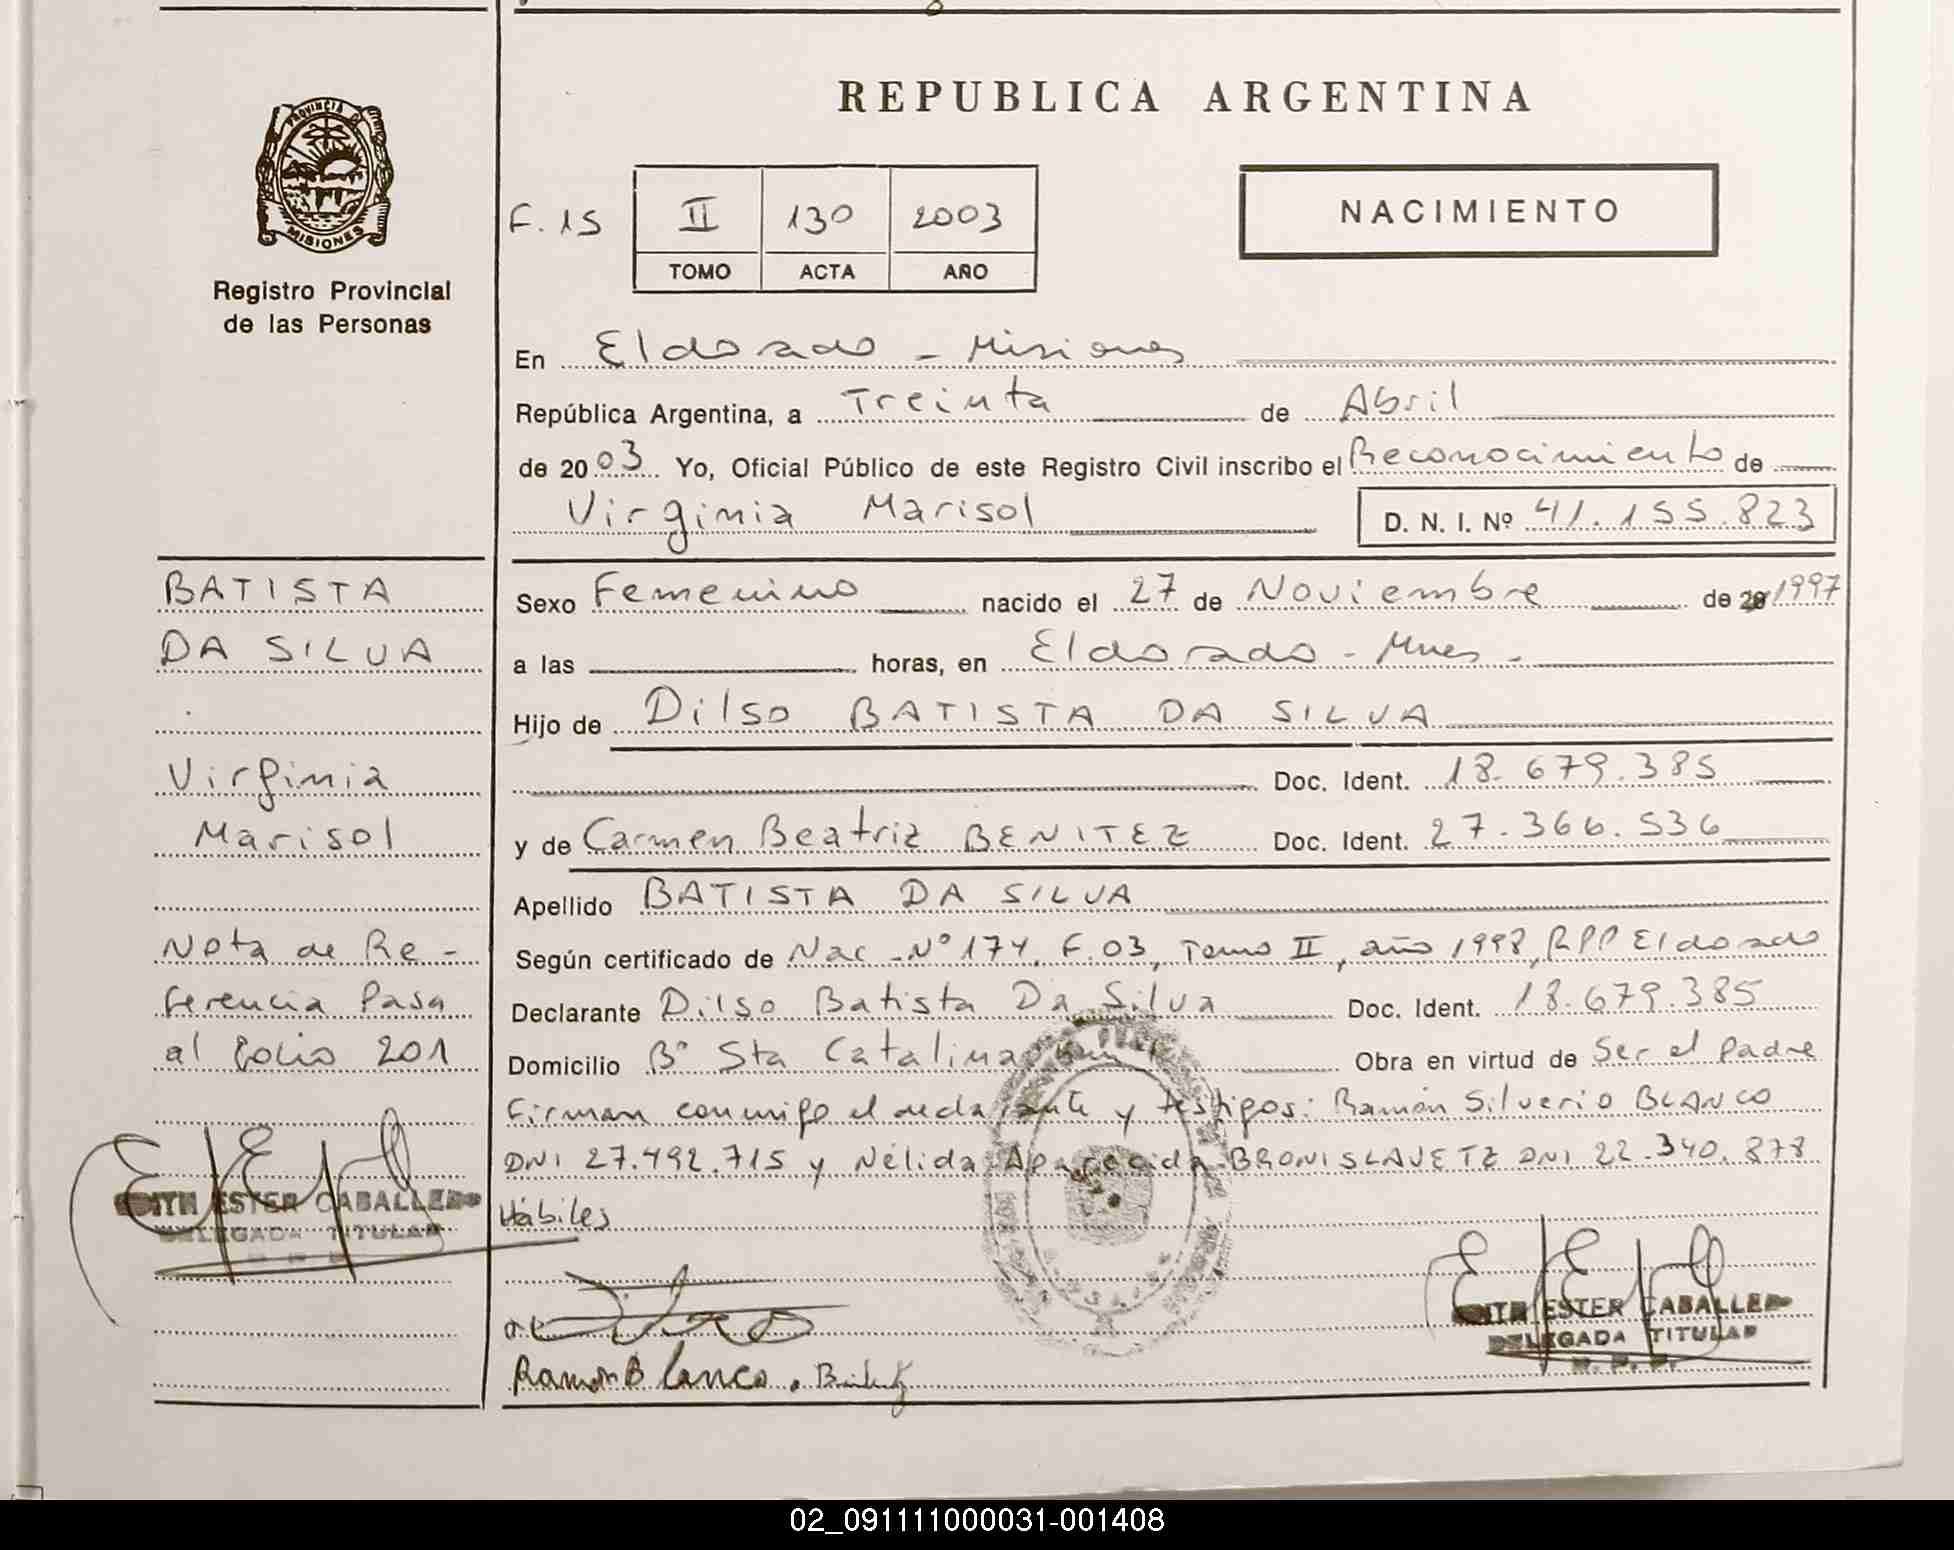 REPUBLICA ARGENTINA
PROVINCIA DE
MISIONES
Registro Provincial
de las Personas
F. 15
II 130 2003
TOMO ACTA AÑO
NACIMIENTO
En Eldorado - Misiones
República Argentina, a Treinta de Abril
de 2003 Yo, Oficial Público de este Registro Civil inscribo el Reconocimiento de
Virginia Marisol D. N. I. Nº 41.155.823
Sexo Femenino nacido el 27 de Noviembre de 1997
a las horas, en Eldorado - Mnes -
Hijo de Dilso BATISTA DA SILVA
Doc. Ident. 18.679.385
y de Carmen Beatriz BENITEZ Doc. Ident. 27.366.536
Apellido BATISTA DA SILVA
Según certificado de Nac - Nº 174, F. 03, Tomo II, año 1998, RPP Eldorado
Declarante Dilso Batista Da Silva Doc. Ident. 18.679.385
Domicilio Bº Sta Catalina Obra en virtud de Ser el padre
Firman conmigo el declarante y testigos: Ramón Silverio BLANCO
DNI 27.492.715 y Nélida Aparecida BRONISLAVETZ DNI 22.340.878
Hábiles
BATISTA
DA SILVA
Virginia
Marisol
Nota de Re -
ferencia Pasa
al folio 201
EDITH ESTER CABALLERO
DELEGADA TITULAR
R. P. P.
Ramon Blanco.
EDITH ESTER CABALLERO
DELEGADA TITULAR
R. P. P.
02_091111000031-001408